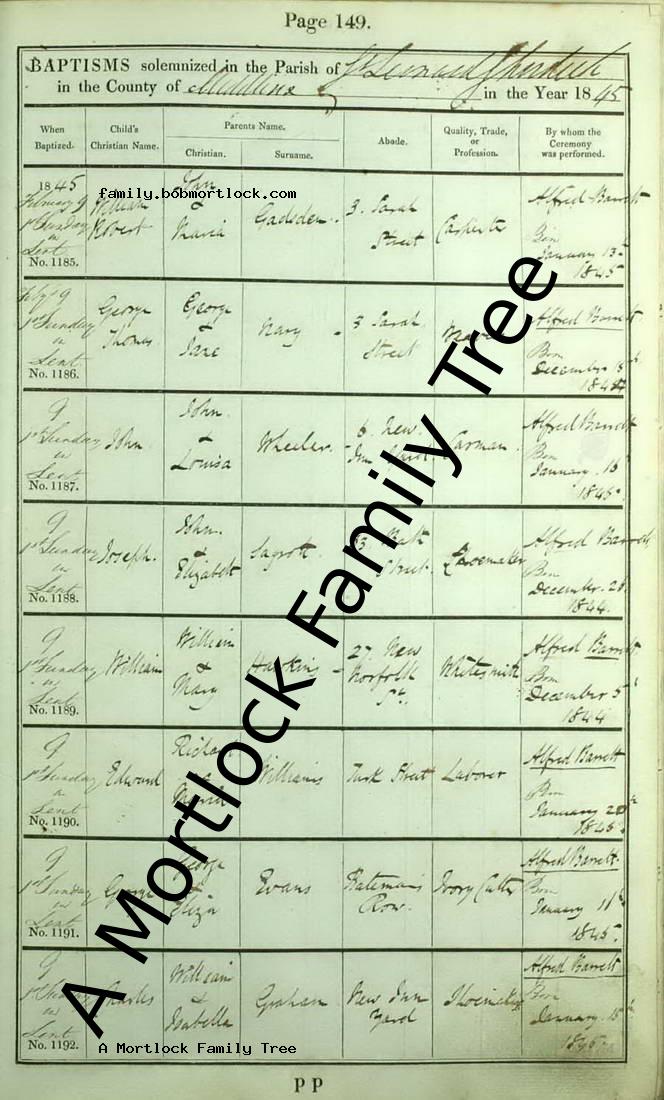 Page 149.
BAPTISMS solemnized in the Parish of St Leonard Shoreditch
in the County of Middlesex in the Year 1845
When Baptized. Child's Christian Name. Parents Name. Christian. Surname. Abode. Quality, Trade, or Profession. By whom the Ceremony was performed.
1845
family.bobmortlock.com
February 9 1st Sunday in Lent No. 1185. William Robert John & Maria Gadsden 3 Sarah Street Carpenter Alfred Barrett Born January 13th 1845
9 1st Sunday in Lent No. 1186. George Thomas George & Jane 3 Sarah Street Alfred Barrett Born December 1844
9 1st Sunday in Lent No. 1187. John John & Louisa Wheeler 6 New Inn Carman Alfred Barrett Born January 1845
9 1st Sunday in Lent No. 1188. Joseph John & Elizabeth Street Shoemaker Alfred Barrett Born December 1844
9 1st Sunday in Lent No. 1189. William William & Mary 27 New Norfolk St. Whitesmith Alfred Barrett Born December 5 1844
9 1st Sunday in Lent No. 1190. Edward Richard & Williams Street Laborer Alfred Barrett Born January 1845
9 1st Sunday in Lent No. 1191. George George & Eliza Evans Bateman's Row. Ivory Cutter Alfred Barrett Born January 11th 1845
9 1st Sunday in Lent No. 1192. Charles William & Isabella Graham New Inn Yard Alfred Barrett Born January 15th 1845
A Mortlock Family Tree
A Mortlock Family Tree
P P